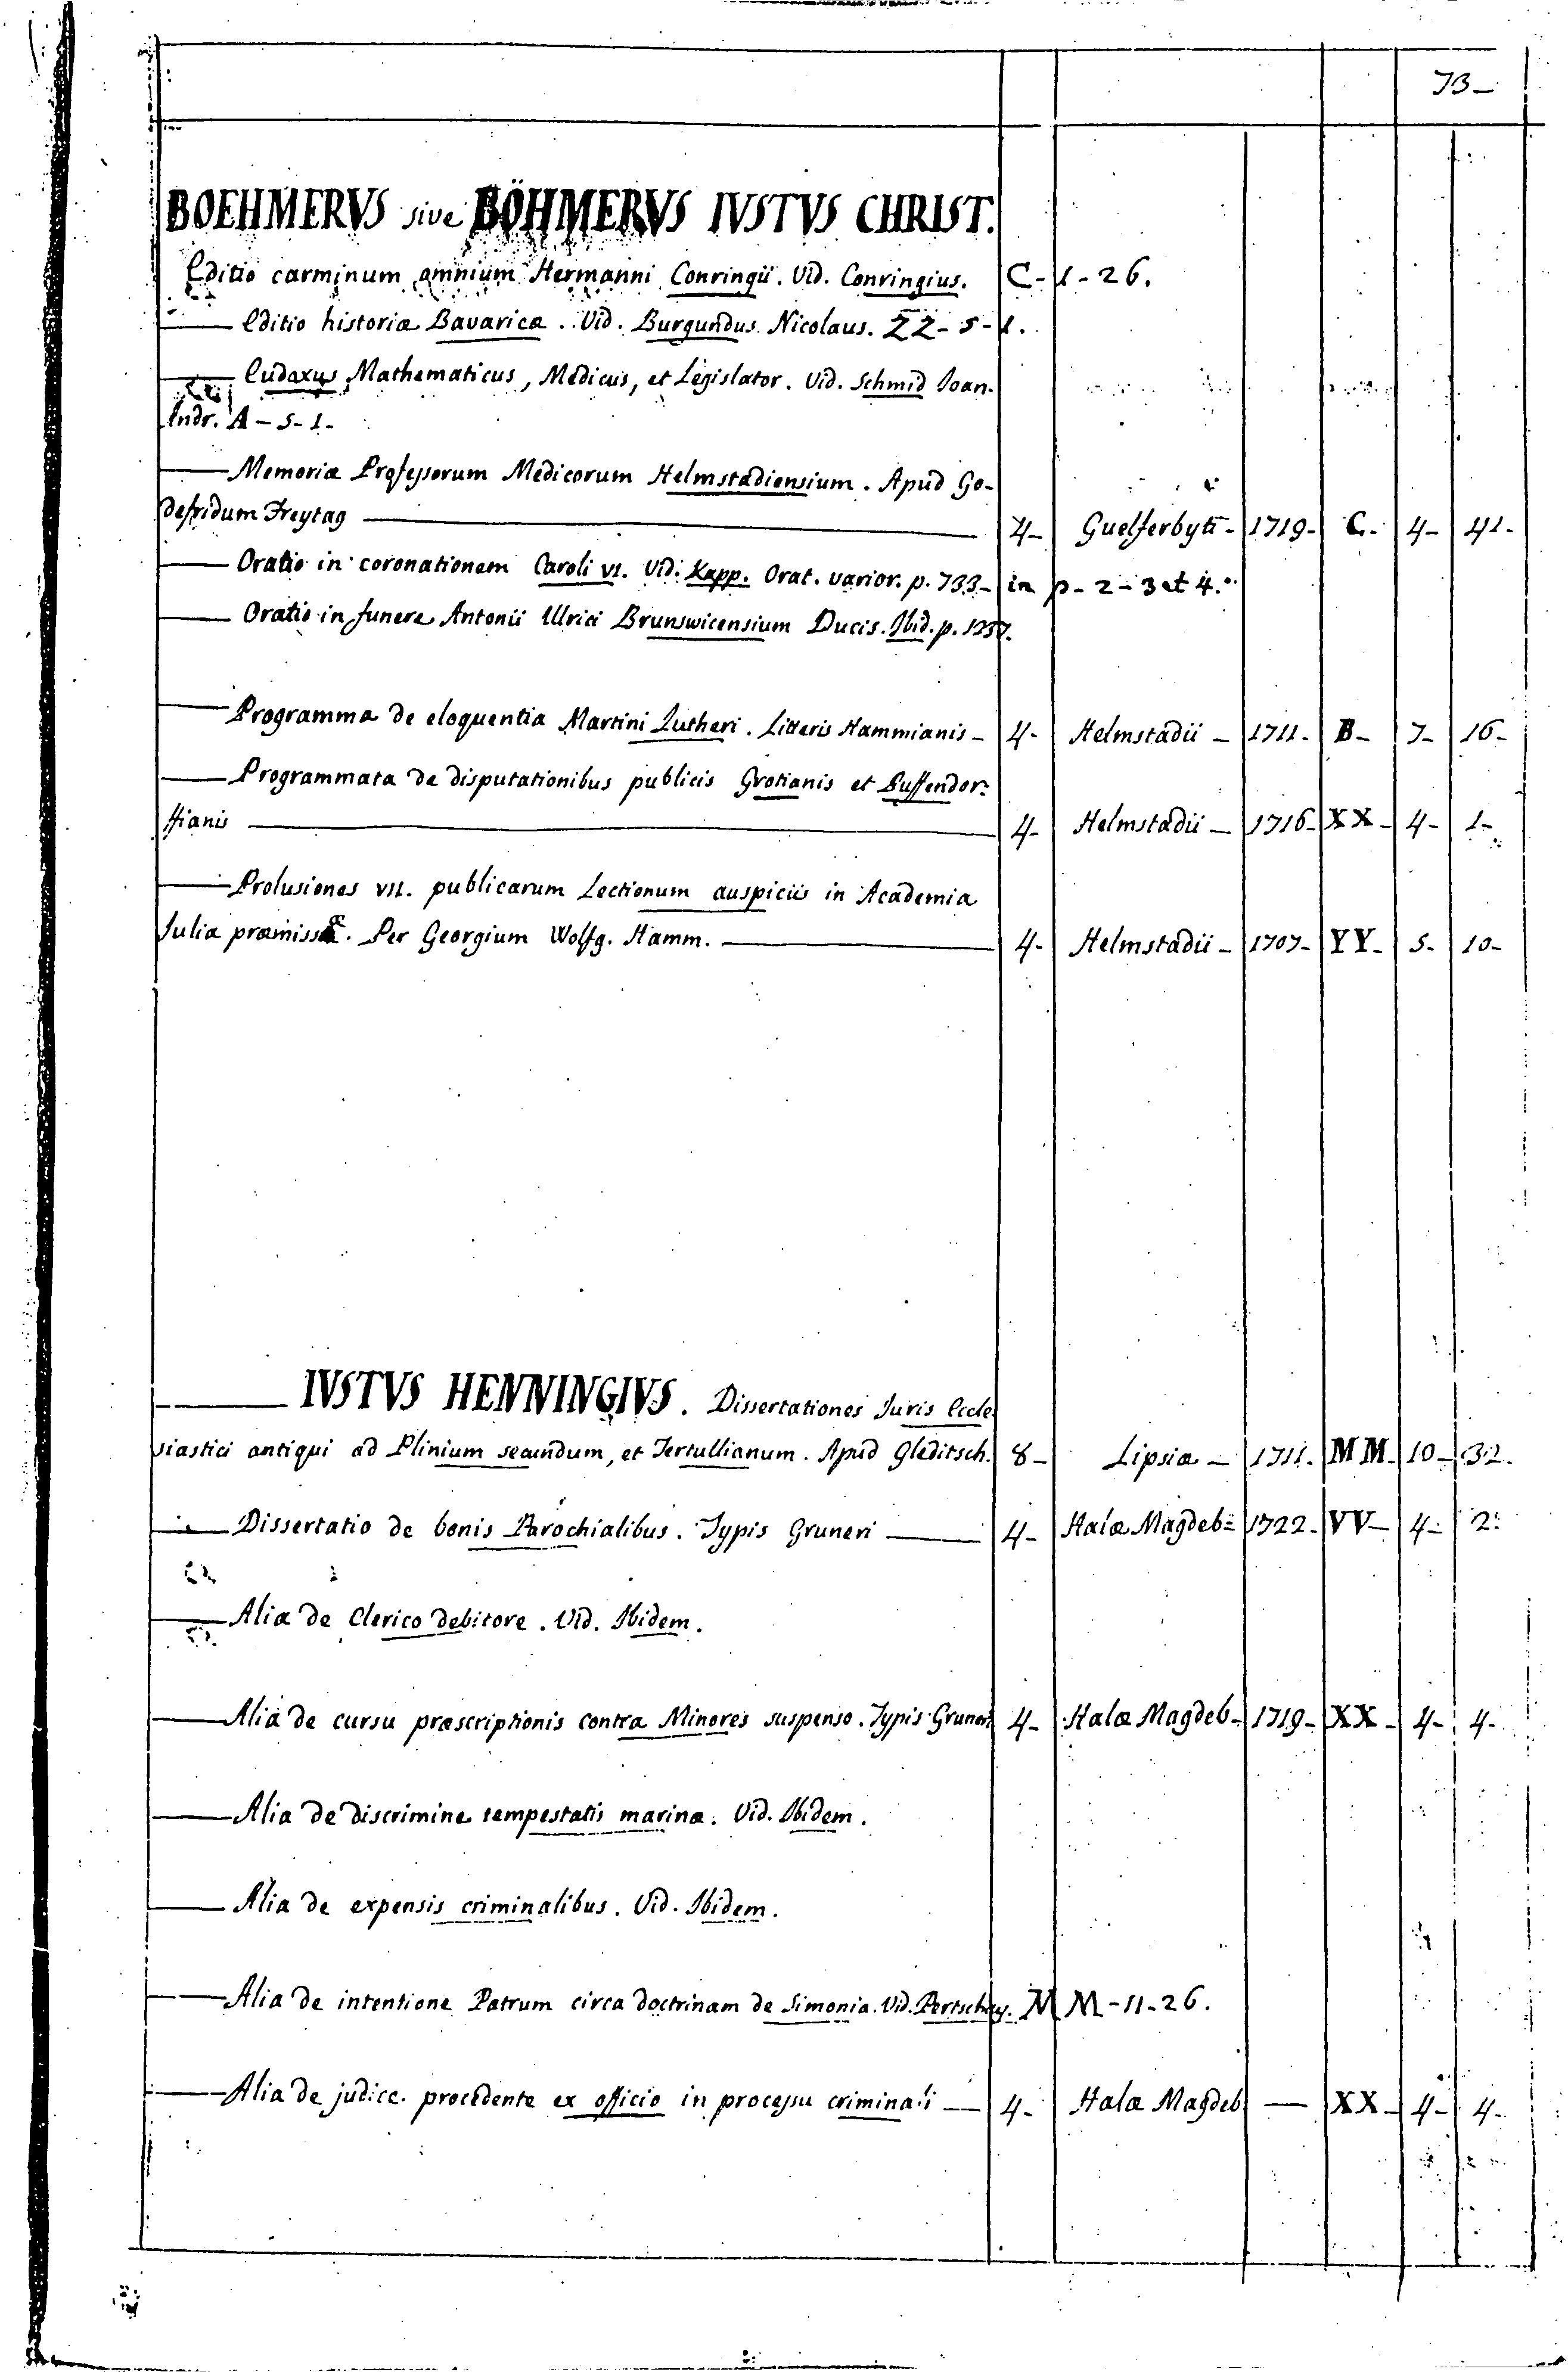 73-
BOEHMERVS sive BÖHMERVS IVSTVS CHRIST.
Editio carminum omnium Hermanni Conringii. Vid. Conringius. C-1-26.
Editio historiæ Bavaricæ. Vid. Burgundus Nicolaus. ZZ-5-1.
Eudoxus Mathematicus, Medicus, et Legislator. Vid. Schmid Ioan.
Andr. A-5-1-
Memoriæ Professorum Medicorum Helmstadiensium. Apud Go-
defridum Freytag 4- Guelferbyti- 1719- C- 4- 41-
Oratio in coronationem Caroli VI. Vid. Kapp. Orat. varior. p. 733- in p-2-3 et 4.
Oratio in funere Antonii Ulrici Brunswicensium Ducis. Ibid. p. 1237.
Programma de eloquentia Martini Lutheri. Litteris Hammianis- 4- Helmstadii- 1711- B- 7- 16-
Programmata de disputationibus publicis Grotianis et Puffendor-
ffianis 4- Helmstadii- 1716- XX- 4- 1-
Prolusiones VII. publicarum Lectionum auspiciis in Academia
Julia præmissæ. Per Georgium Wolfg. Hamm. 4- Helmstadii- 1707- YY- 5- 10-
IVSTVS HENNINGIVS. Dissertationes Juris Eccle
siastici antiqui ad Plinium secundum, et Tertullianum. Apud Gleditsch. 8- Lipsiæ- 1711- MM- 10- 32.
Dissertatio de bonis Parochialibus. Typis Gruneri 4- Halæ Magdeb- 1722- VV- 4- 2-
Alia de Clerico debitore. Vid. Ibidem.
Alia de cursu præscriptionis contra Minores suspenso. Typis Gruneri 4- Halæ Magdeb- 1719- XX- 4- 4-
Alia de discrimine tempestatis marinæ. Vid. Ibidem.
Alia de expensis criminalibus. Vid. Ibidem.
Alia de intentione Patrum circa doctrinam de Simonia. Vid. Pertschius. MM-11-26.
Alia de judice procedente ex officio in processu criminali 4- Halæ Magdeb — XX- 4- 4-